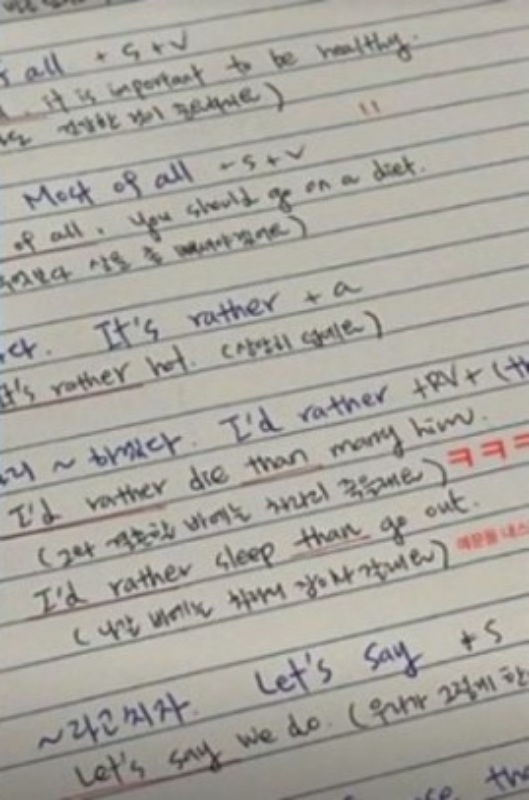 all + S + V
it is important to be healthy.
Most of all ~ S + V
of all, you should go on a diet.
It's rather + a
It's rather hot. (상당히 덥네요)
~ 하겠다. I'd rather +RV+ (th
I'd rather die than marry him.
(그와 결혼할 바에는 차라리 죽을래요) ㅋㅋㅋ
I'd rather sleep than go out.
(나갈 바에는 차라리 잠이나 잘래요) 예문들 네스
~라고 치자. Let's say + S
Let's say we do. (우리가 그렇게 한